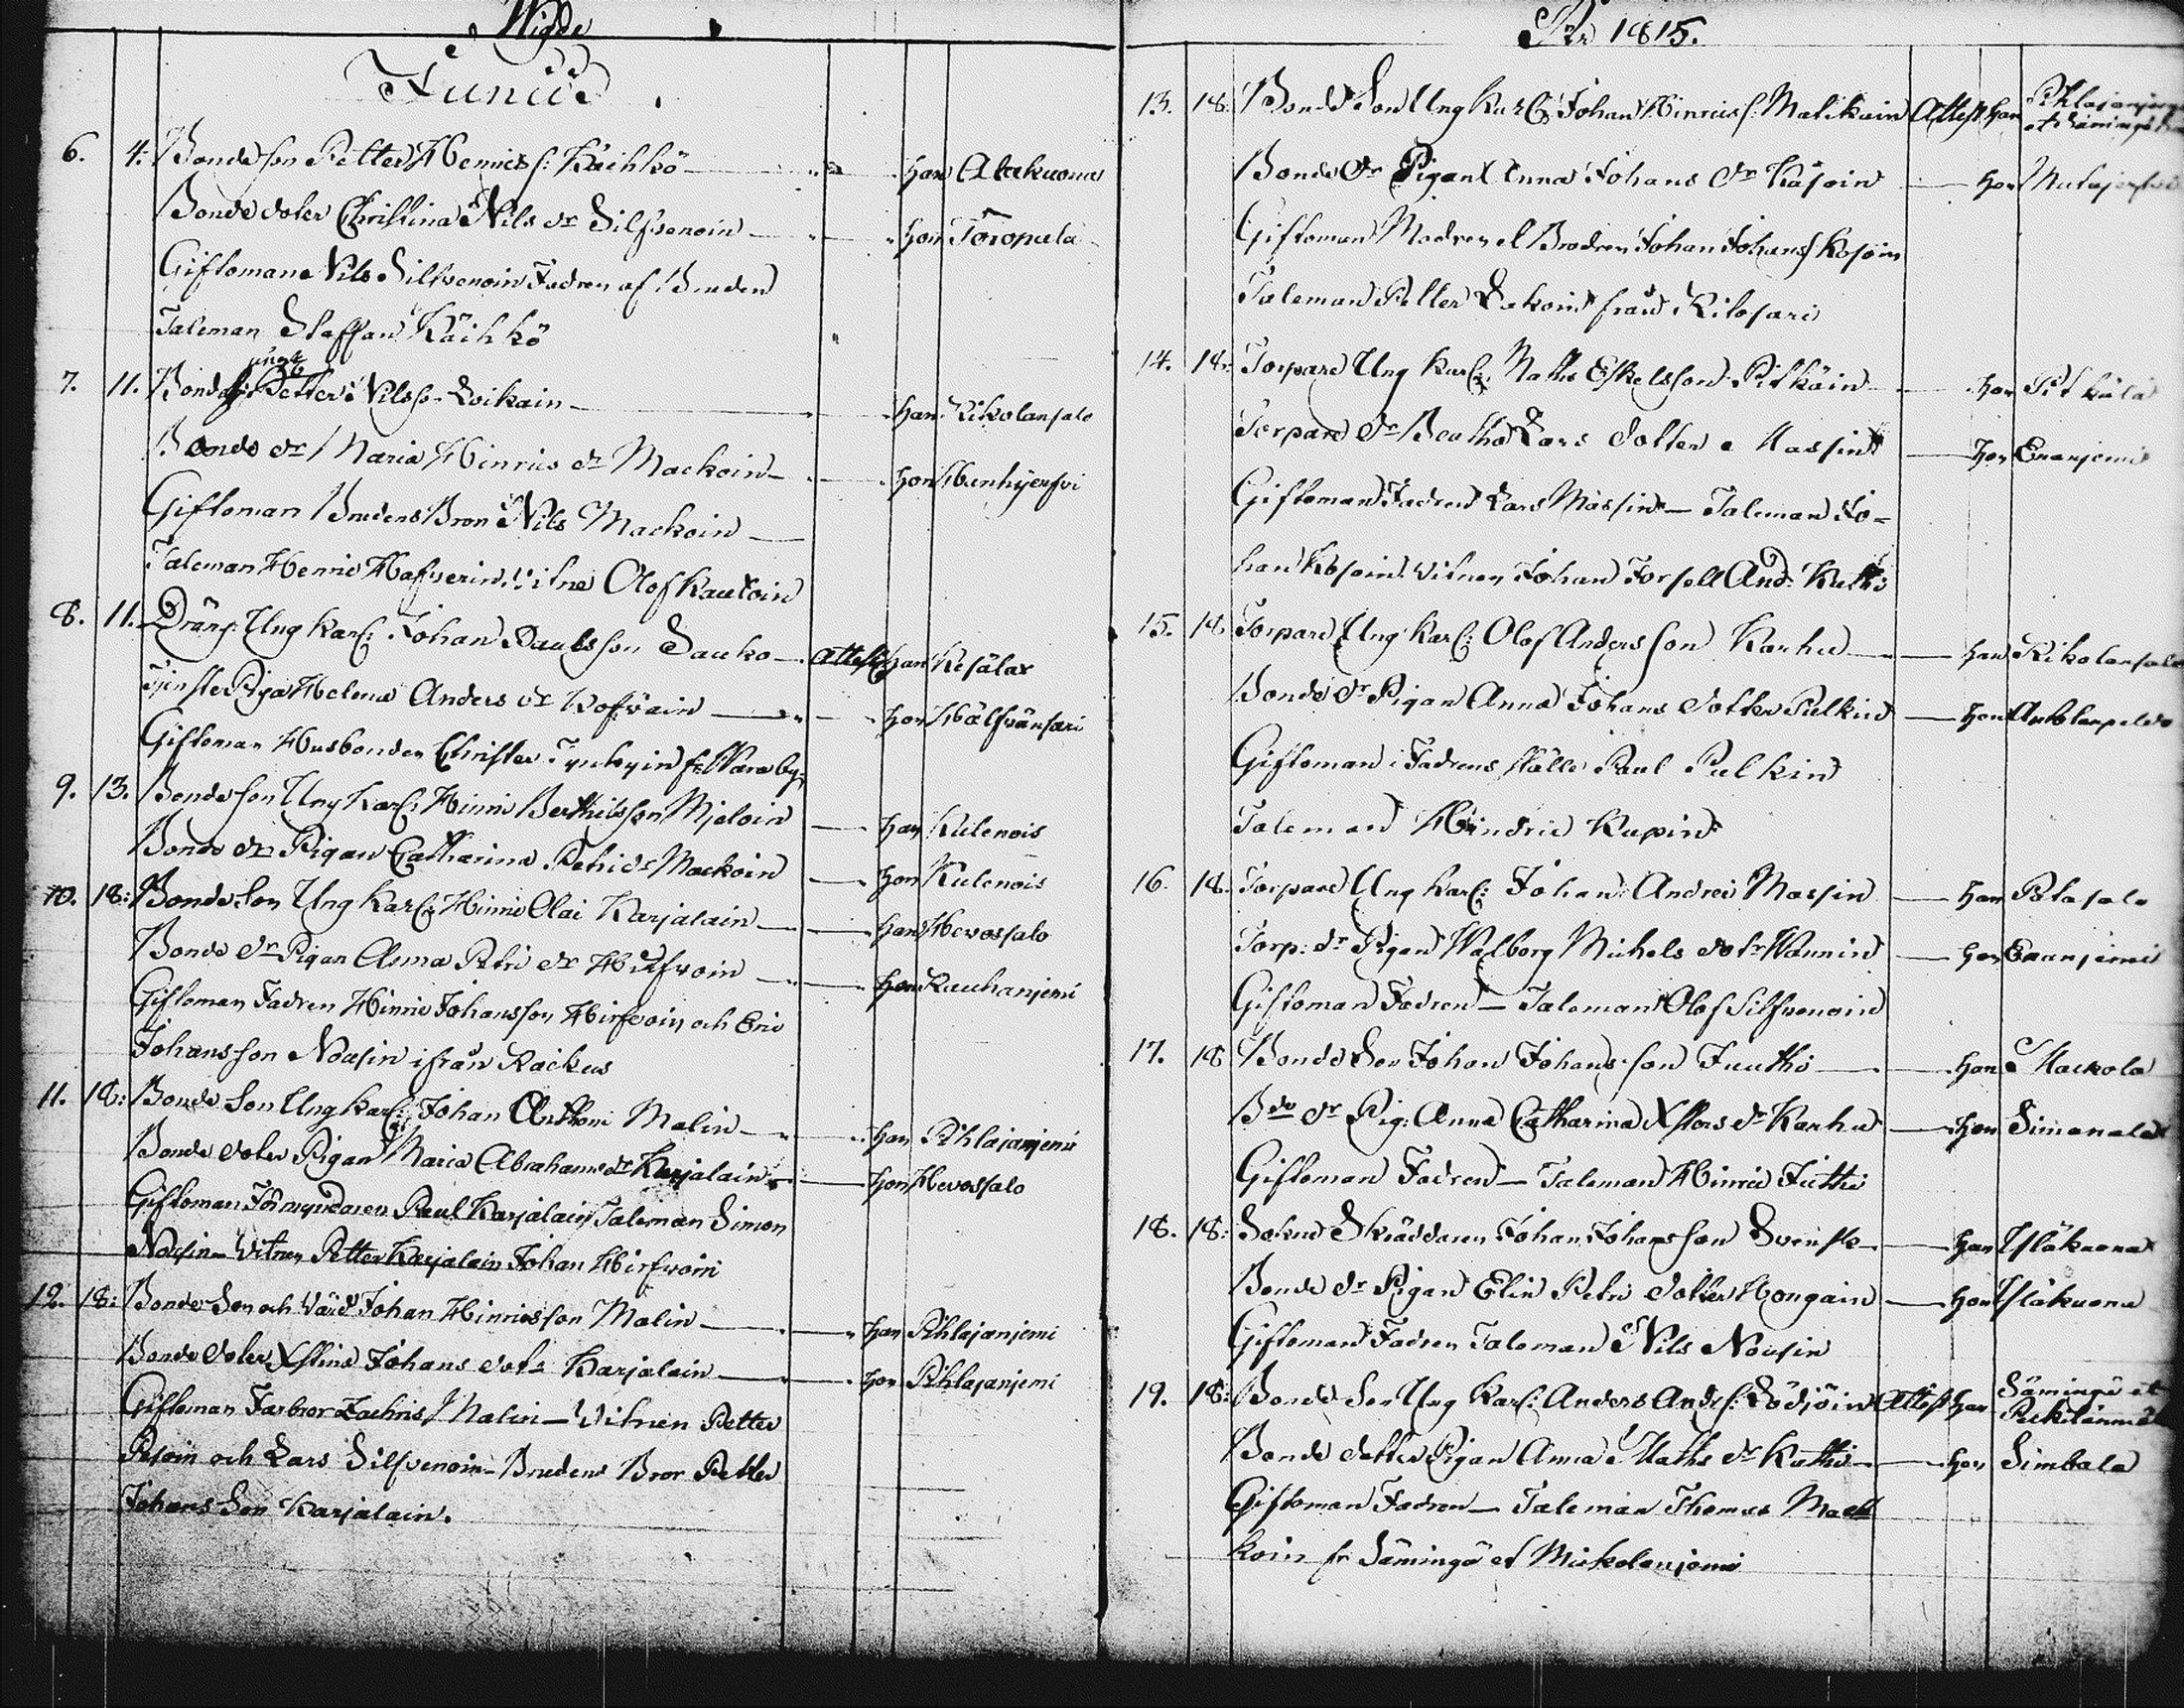 Wigde
Junii
6. 4. Bondeson Petter Henrics s: Käihkö — han Alakuona
Bonde doter Christina Nils dr Silfvenoin — hon Toropala
Giftoman Nils Silfvenoin Fadren af Bruden
Taleman Staffan Käihkö
7. 11. Petter Nilss. Loikain — han Rikolansalo
Bonde dr Maria Hinrics dr Mackoin — hon
Giftoman Brudens Bron Nils Mackoin —
Taleman Henric Hafverin. Olof Kautoin
8. 11. Dräng Ung Karl: Johan Paulsson Sauko — Attest han Kesälax
Piga Helena Anders dr Kosvain — hon Hälfvänsari
Giftoman Husbonden Christer
9. 13. Bonde son Ung Karl: Hinric Berthilsson Mjeloin — han Kulenois
Bonde dr Pigan Catharina Petri dr Mackoin — hon Kulenois
10. 18: Bonde Son Ung Karl: Hinric Olai Karjalain — han Hevossalo
Bonde dr Pigan Anna Petri dr Hirfvoin — hon Rauhanjemi
Giftoman Fadren Hinric Johansson Hirfvoin och Eric
Johansson Nousin ifrån Rackus
11. 18: Bonde Son Ung Karl: Johan Anthoni Malin — han Pihlajanjemi
Bonde doter Pigan Maria Abrahams dr Karjalain — hon Hevossalo
Giftoman Förmyndaren Paul Karjalain Taleman Simon
Nousin — Vitnen Petter Karjalain Johan Hirfvoin
12. 18: Bonde Son och Johan Hinricsson Malin — han Pihlajanjemi
Bonde doter Xstina Johans dotr Karjalain — hon Pihlajanjemi
Giftoman Farbror Zachris Malin — Vitnen Petter
och Lars Silfvenoin — Brudens Bror Petter
Johans Son Karjalain.
År 1815.
13. 18: Bonde Son Ung Karl: Johan Hinrics s: Malikain Attest han
Bonde dr Pigan Anna Johans dr Käsoin — hon
Giftoman Modren el Brodren Johan Johanss Kosoin
Taleman Petter från Kilosari
14. 18: Torpare Ung Karl: Maths Eskelsson Pitkäin — han Pitkälä
Torpare dr Beatha Lars dotter Massin — hon Enanjemi
Giftoman Fadren Lars Massin — Taleman Jo-
han Kosoin. Vitnen Johan Forsell And: Kutti
15. 18. Torpare Ung Karl: Olof Andersson Karhu — han Rikolansalo
Bonde dr Pigan Anna Johans dotter Pulkin — hon
Giftoman i Fadrens ställe Paul Pulkin
Taleman Hindric Kupin
16. 18. Torpare Ung Karl: Johan Andrei Massin — han Potasalo
Torp: dr Pigan Walborg Michels dotr Vannin — hon Enanjemi
Giftoman Fadren — Taleman Olof Silfvenoin
17. 18 Bonde Son Johan Johansson Juuthi — han Mackola
Bde dr Pig: Anna Catharina Xstfers dr Karhu — hon Simanala
Giftoman Fadren — Taleman Hinric Juthi
18. 18: Sokne Skräddaren Johan Johansson Svensk — han Ysläkuona
Bonde dr Pigan Elin Petri dotter Hongain — hon Ysläkuona
Giftoman Fadren Taleman Nils Nousin
19. 18: Bonde Son Ung Karl: Anders Andr s: Södjöin Attest han Sämingö et
Bonde dotter Pigan Anna Maths dr Kuthi — hon Simbala
Giftoman Fadren — Taleman Thomas Mac
koin fr Sämingö et Mickolanjemi